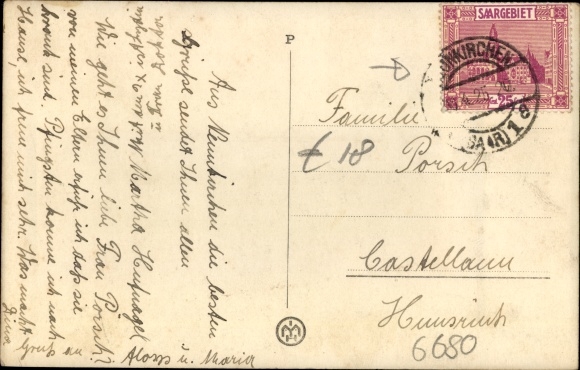 Aus Neunkirchen die besten
Grüße sendet Ihnen allen
Martha Hufnagel
Wie geht es Ihnen liebe Frau Porsch?
von meinen Eltern erfuhr ich daß sie
krank sind. Pfingsten komme ich nach
Hause, ich freue mich sehr. Was macht
Dina
Gruß an
Aloys u. Maria
P
SAARGEBIET
25
NEUNKIRCHEN
(SAAR) 1
Familie
Porsch
Castellaun
Hunsrück
€ 18
6680